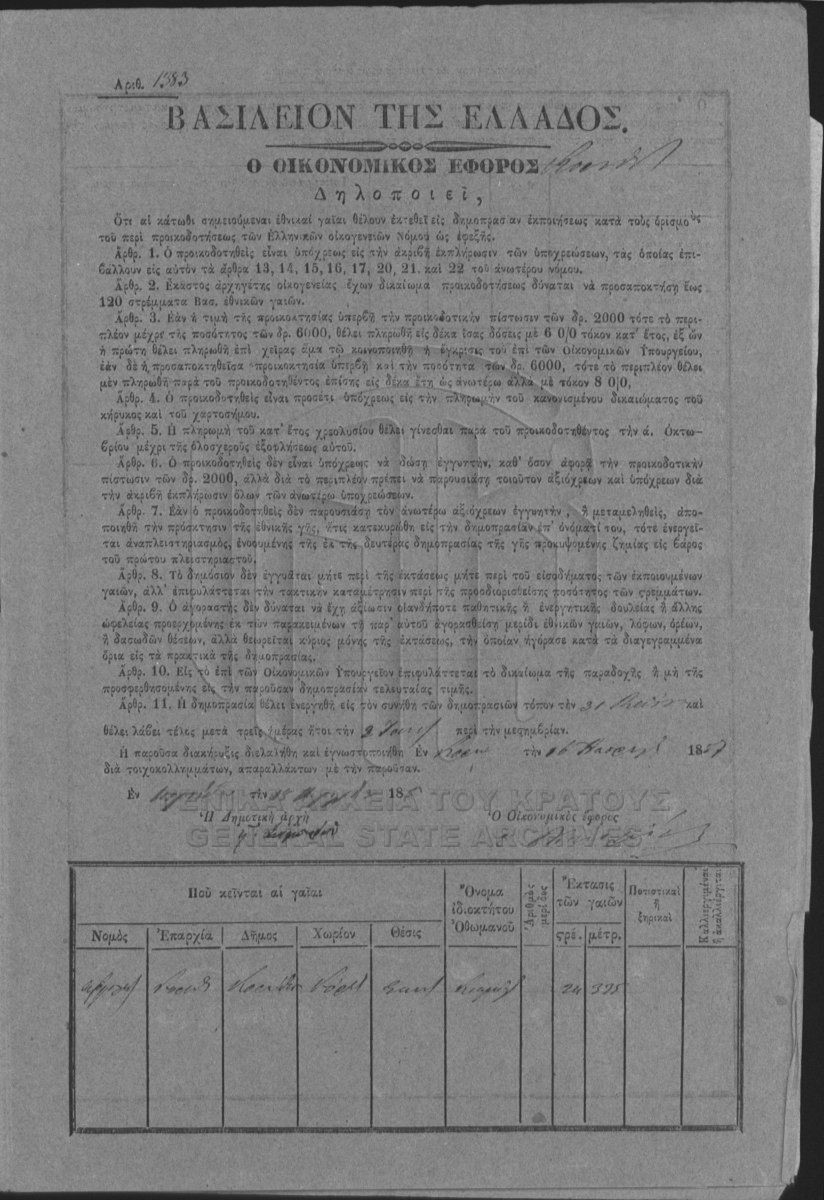 Ἀριθ. 1383
ΒΑΣΙΛΕΙΟΝ ΤΗΣ ΕΛΛΑΔΟΣ.
Ο ΟΙΚΟΝΟΜΙΚΟΣ ΕΦΟΡΟΣ
Δηλοποιεῖ,
Ὅτι αἱ κάτωθι σημειούμεναι ἐθνικαὶ γαῖαι θέλουν ἐκτεθεῖ εἰς δημοπρασίαν ἐκποιήσεως κατὰ τοὺς ὁρισμοὺς
τοῦ περὶ προικοδοτήσεως τῶν Ἑλληνικῶν οἰκογενειῶν Νόμου ὡς ἐφεξῆς.
Ἄρθρ. 1. Ὁ προικοδοτηθεὶς εἶναι ὑπόχρεως εἰς τὴν ἀκριβῆ ἐκπλήρωσιν τῶν ὑποχρεώσεων, τὰς ὁποίας ἐπι-
βάλλουν εἰς αὐτὸν τὰ ἄρθρα 13, 14, 15, 16, 17, 20, 21. καὶ 22 τοῦ ἀνωτέρω νόμου.
Ἄρθρ. 2. Ἕκαστος ἀρχηγέτης οἰκογενείας ἔχων δικαίωμα προικοδοτήσεως δύναται νὰ προσαποκτήσῃ ἕως
120 στρέμματα Βασ. ἐθνικῶν γαιῶν.
Ἄρθρ. 3. Ἐὰν ἡ τιμὴ τῆς προικοκτησίας ὑπερβῇ τὴν προικοδοτικὴν πίστωσιν τῶν δρ. 2000 τότε τὸ περι-
πλέον μέχρι τῆς ποσότητος τῶν δρ. 6000, θέλει πληρωθῆ εἰς δέκα ἴσας δόσεις μὲ 6 0/0 τόκον κατ' ἔτος, ἐξ ὧν
ἡ πρώτη θέλει πληρωθῆ ἐπὶ χεῖρας ἅμα τῷ κοινοποιηθῇ ἡ ἔγκρισις τοῦ ἐπὶ τῶν Οἰκονομικῶν Ὑπουργείου,
ἐὰν δὲ ἡ προσαποκτηθεῖσα προικοκτησία ὑπερβῇ καὶ τὴν ποσότητα τῶν δρ. 6000, τότε τὸ περιπλέον θέλει
μὲν πληρωθῆ παρὰ τοῦ προικοδοτηθέντος ἐπίσης εἰς δέκα ἔτη ὡς ἀνωτέρω ἀλλὰ μὲ τόκον 8 0/0,
Ἄρθρ. 4. Ὁ προικοδοτηθεὶς εἶναι προσέτι ὑπόχρεως εἰς τὴν πληρωμὴν τοῦ κανονισμένου δικαιώματος τοῦ
κήρυκος καὶ τοῦ χαρτοσήμου.
Ἄρθρ. 5. Ἡ πληρωμὴ τοῦ κατ' ἔτος χρεολυσίου θέλει γίνεσθαι παρὰ τοῦ προικοδοτηθέντος τὴν ά. Ὀκτω-
βρίου μέχρι τῆς ὁλοσχεροῦς ἐξοφλήσεως αὐτοῦ.
Ἄρθρ. 6. Ὁ προικοδοτηθεὶς δὲν εἶναι ὑπόχρεως νὰ δώσῃ ἐγγυητὴν, καθ' ὅσον ἀφορᾷ τὴν προικοδοτικὴν
πίστωσιν τῶν δρ. 2000, ἀλλὰ διὰ τὸ περιπλέον πρέπει νὰ παρουσιάσῃ τοιοῦτον ἀξιόχρεων καὶ ὑπόχρεων διὰ
τὴν ἀκριβῆ ἐκπλήρωσιν ὅλων τῶν ἀνωτέρω ὑποχρεώσεων.
Ἄρθρ. 7. Ἐὰν ὁ προικοδοτηθεὶς δὲν παρουσιάσῃ τὸν ἀνωτέρω ἀξιόχρεων ἐγγυητὴν, ἢ μεταμεληθεὶς, ἀπο-
ποιηθῇ τὴν πρόσκτησιν τῆς ἐθνικῆς γῆς, ἥτις κατεκυρώθη εἰς τὴν δημοπρασίαν ἐπ' ὀνόματί του, τότε ἐνεργεῖ-
ται ἀναπλειστηριασμὸς, ἐνοουμένης τῆς ἐκ τῆς δευτέρας δημοπρασίας τῆς γῆς προκυψομένης ζημίας εἰς βάρος
τοῦ πρώτου πλειστηριαστοῦ.
Ἄρθρ. 8. Τὸ δημόσιον δὲν ἐγγυᾶται μήτε περὶ τῆς ἐκτάσεως μήτε περὶ τοῦ εἰσοδήματος τῶν ἐκποιουμένων
γαιῶν, ἀλλ' ἐπιφυλάττεται τὴν τακτικὴν καταμέτρησιν περὶ τῆς προσδιορισθείσης ποσότητος τῶν στρεμμάτων.
Ἄρθρ. 9. Ὁ ἀγοραστὴς δὲν δύναται νὰ ἔχῃ ἀξίωσιν οἱανδήποτε παθητικῆς ἢ ἐνεργητικῆς δουλείας ἢ ἄλλης
ὠφελείας προερχομένης ἐκ τῶν παρακειμένων τῇ παρ' αὐτοῦ ἀγορασθείσῃ μερίδι ἐθνικῶν γαιῶν, λόφων, ὀρέων,
ἢ δασωδῶν θέσεων, ἀλλὰ θεωρεῖται κύριος μόνης τῆς ἐκτάσεως, τὴν ὁποίαν ἠγόρασε κατὰ τὰ διαγεγραμμένα
ὅρια εἰς τὰ πρακτικὰ τῆς δημοπρασίας.
Ἄρθρ. 10. Εἰς τὸ ἐπὶ τῶν Οἰκονομικῶν Ὑπουργεῖον ἐπιφυλάττεται τὸ δικαίωμα τῆς παραδοχῆς ἢ μὴ τῆς
προσφερθησομένης εἰς τὴν παροῦσαν δημοπρασίαν τελευταίας τιμῆς.
Ἄρθρ. 11. Ἡ δημοπρασία θέλει ἐνεργηθῆ εἰς τὸν συνήθη τῶν δημοπρασιῶν τόπον τὴν 31 καὶ
θέλει λάβει τέλος μετὰ τρεῖς ἡμέρας ἤτοι τὴν περὶ τὴν μεσημβρίαν.
Ἡ παροῦσα διακήρυξις διελαλήθη καὶ ἐγνωστοποιήθη Ἐν τὴν 16 1857
διὰ τοιχοκολλημμάτων, ἀπαραλλάκτων μὲ τὴν παροῦσαν.
Ἐν τὴν 18 185
Ἡ Δημοτικὴ ἀρχὴ Ὁ Οἰκονομικὸς ἔφορος
ΓΕΝΙΚΑ ΑΡΧΕΙΑ ΤΟΥ ΚΡΑΤΟΥΣ
GENERAL STATE ARCHIVES
Ποῦ κεῖνται αἱ γαῖαι
Νομὸς Ἐπαρχία Δῆμος Χωρίον Θέσις
Ὄνομα ἰδιοκτήτου Ὀθωμανοῦ
Ἀριθμὸς μερίδος
Ἔκτασις τῶν γαιῶν
στρέ. μέτρ.
Ποτιστικαὶ ἢ ξηρικαὶ
Καλλιεργημέναι ἢ ἀκαλλιέργηται
24 395